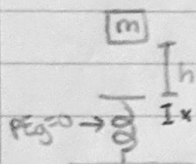 m
h
x
PEg=0→